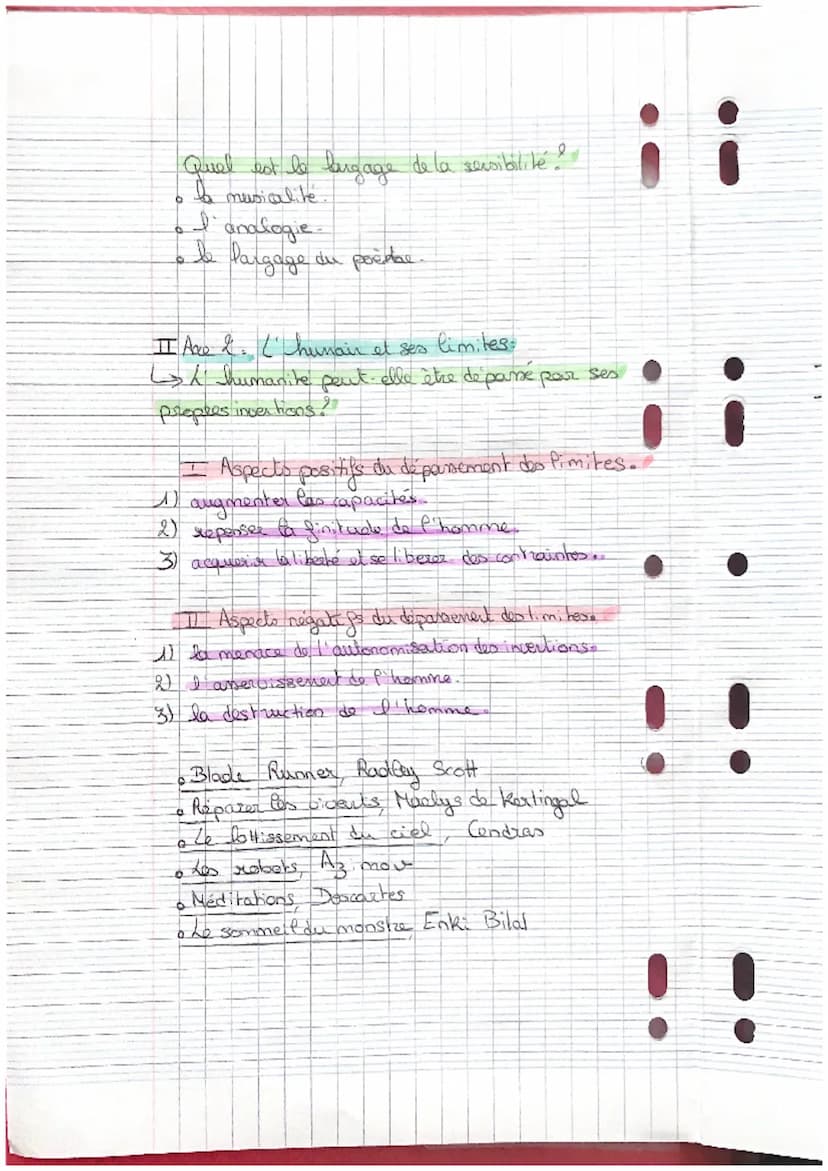 Quel est le langage de la sensibilité?
• la musicalité.
• l'analogie.
• le langage du poète.
II Axe 2: L'humain et ses limites:
↳ L'humanité peut-elle être dépassé par ses
propres inventions?
I Aspects positifs du dépassement des limites.
1) augmenter les capacités.
2) repenser la finitude de l'homme.
3) acquerir la liberté et se liberer des contraintes.
II Aspects négatifs du dépassement des limites.
1) la menace de l'autonomisation des inventions.
2) l'asservissement de l'homme.
3) la destruction de l'homme.
• Blade Runner, Radley Scott
• Réparer les vivants, Maelys de Kertingal
• Le lottissement du ciel, Cendras
• Les robots, Azimov
• Méditations, Descartes
• Le sommeil du monstre, Enki Bilal